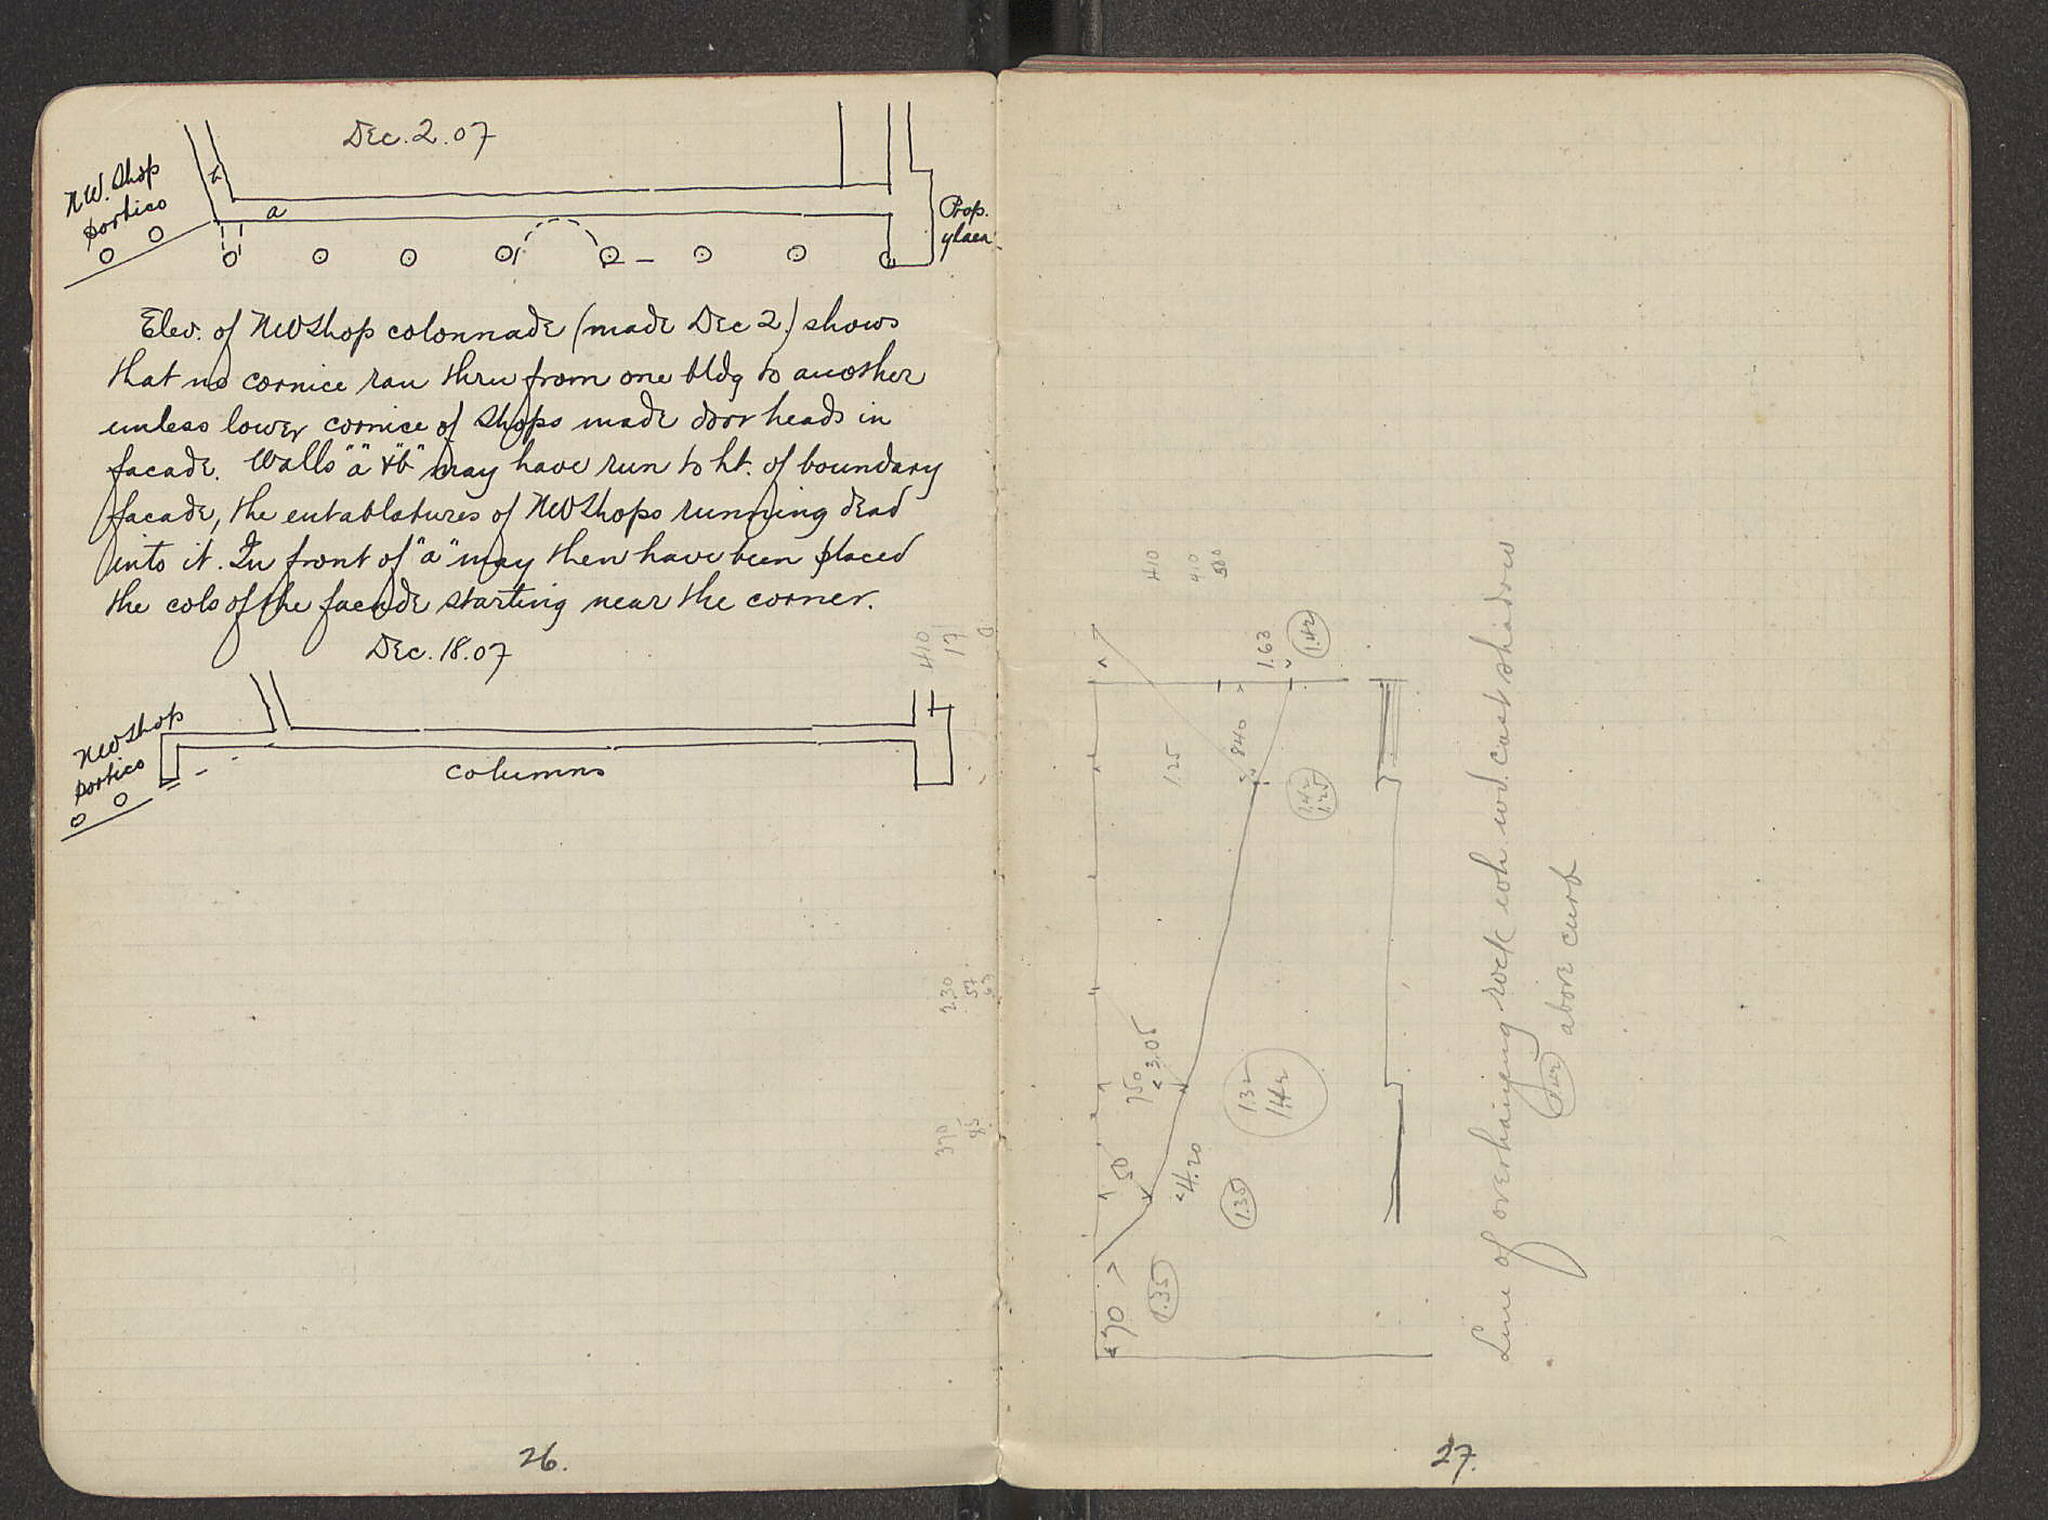 Dec. 2. 07
N.W. Shop
portico
b
a
Prop.
ylaea
Elev. of NW Shop colonnade (made Dec 2.) shows
that no cornice ran thru from one bldg to another
unless lower cornice of shops made door heads in
facade. Walls "a" & "b" may have run to ht. of boundary
facade, the entablatures of NW Shops running dead
into it. In front of "a" may then have been placed
the cols of the facade starting near the corner.
Dec. 18. 07
NW Shop
portico
columns
410
17
0
2.30
57
63
370
85
26.
410
410
50
1.63
1.42
1.25
840
1.42
1.25
750
3.05
1.32
1.42
50
4.20
1.35
70
1.35
Line of overhanging rock wh wd. cast shadow
above curb
27.